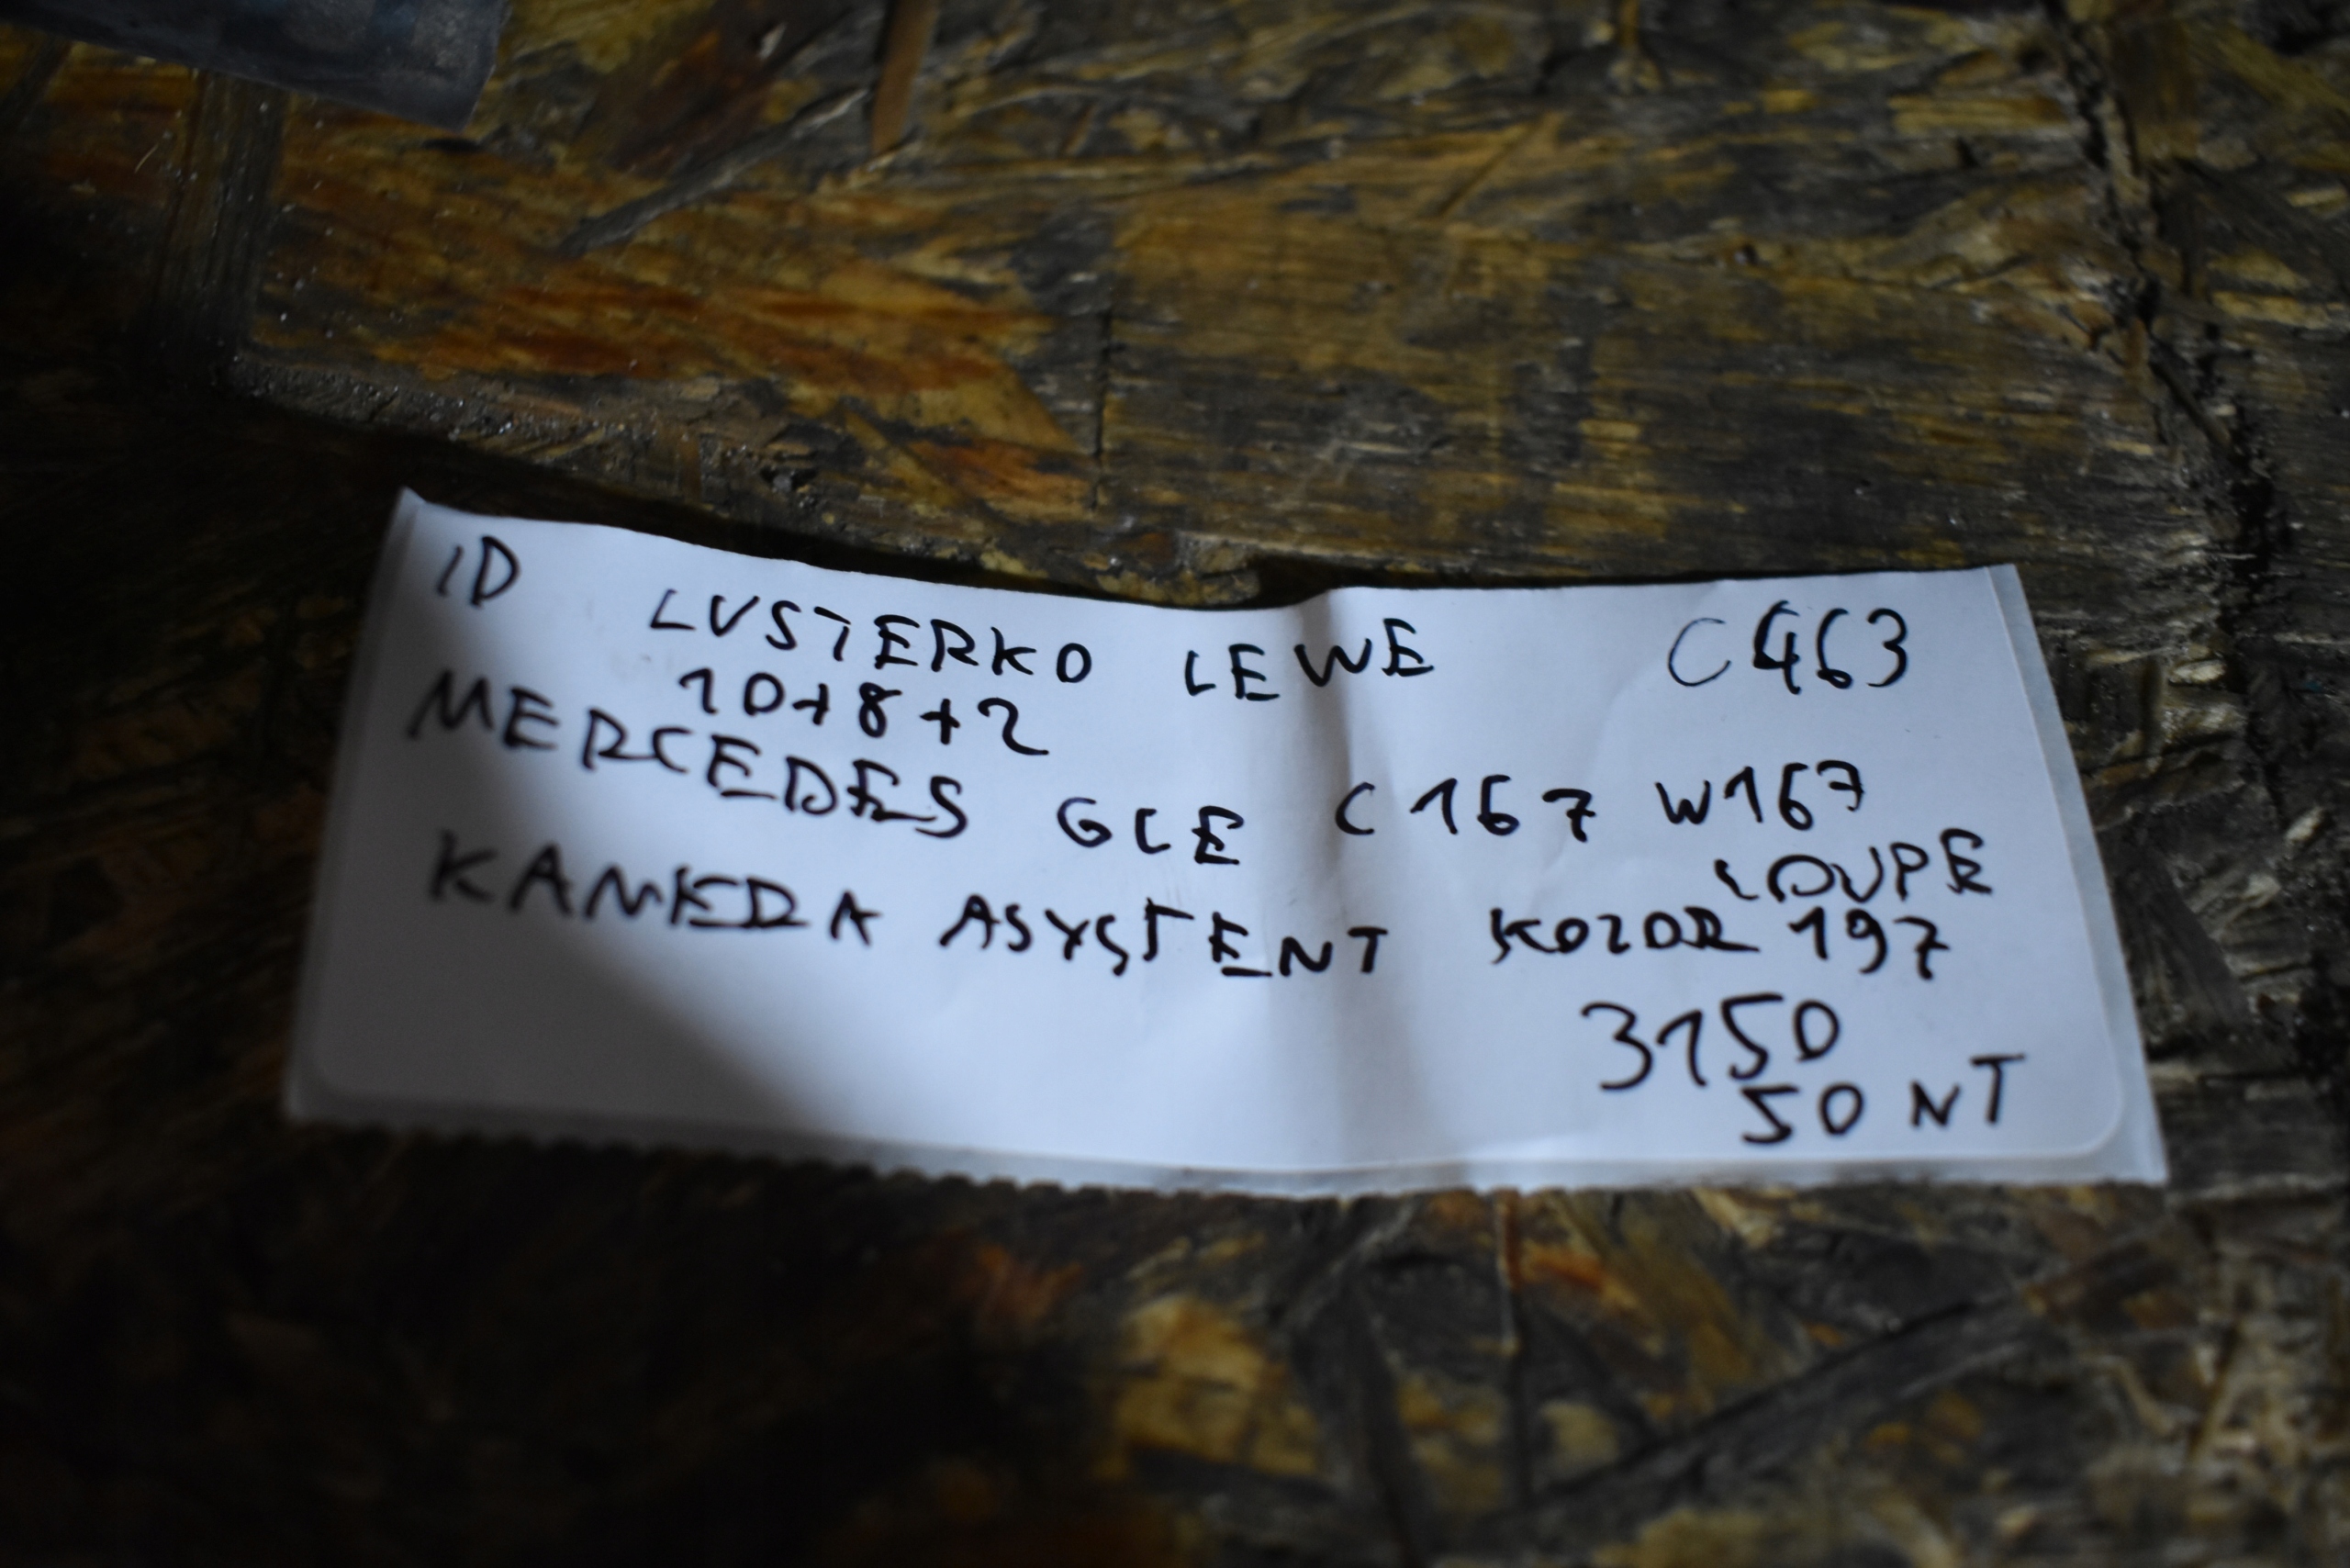 ID LUSTERKO LEWE C463
10+8+2
MERCEDES GLE C167 W167
COUPE
KAMERA ASYSTENT KOLOR 197
3150
50 NT